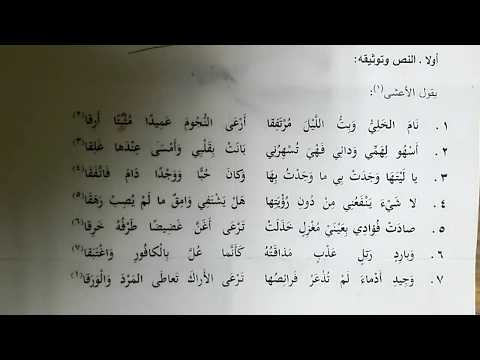 أولا . النص وتوثيقه:
يقول الأعشى(١):
١ . نَامَ الخَلِيُّ وَبِتُّ اللَّيْلَ مُرْتَفِقا أَرْعَى النُّجُومَ عَمِيدًا مُثْبَتًا أَرِقا(٢)
٢ . أَسْهُو لِهَمِّي وَدائي فَهْيَ تُسْهِرُني بَانَتْ بِقَلْبي وَأَمْسَى عِنْدَها غَلِقا(٣)
٣ . يا لَيْتَها وَجَدَتْ بي ما وَجَدْتُ بِها وَكانَ حُبًّا وَوَجْدًا دَامَ فَاتَّفَقا(٤)
٤ . لا شَيْءَ يَنْفَعُني مِنْ دُونِ رُؤْيَتِها هَلْ يَشْتَفي وَامِقٌ ما لَمْ يُصِبْ رَهَقا(٥)
٥ . صادَتْ فُؤادي بِعَيْنَيْ مُغْزِلٍ خَذَلَتْ تَرْعَى أَغَنَّ غَضِيضًا طَرْفُهُ خَرِقا(٦)
٦ . وَبارِدٍ رَتِلٍ عَذْبٍ مَذاقَتُهُ كَأَنَّما عُلَّ بِالْكافُورِ وَاغْتَبَقا(٧)
٧ . وَجِيدِ أَدْماءَ لَمْ تُذْعَرْ فَرائِصُها تَرْعَى الأَراكَ تَعاطَى المَرْدَ وَالْوَرَقا(٦)